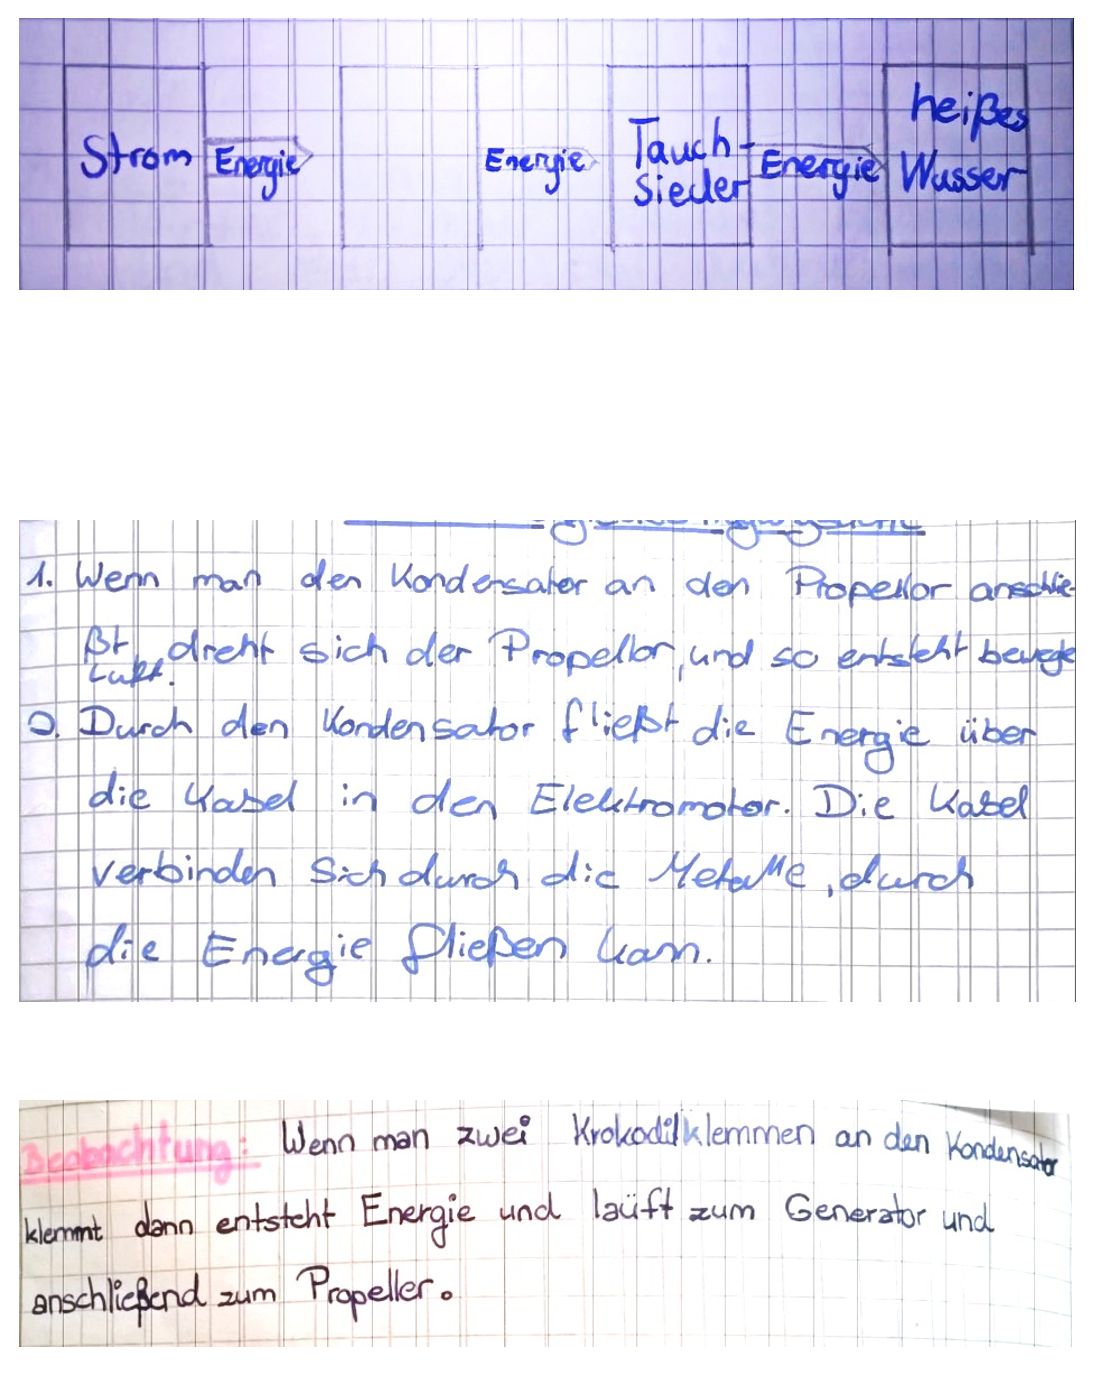 Strom Energie Energie Tauch-
sieder Energie heißes
Wasser
1. Wenn man den Kondensator an den Propellor anschlie-
ßt, dreht sich der Propellor, und so entsteht bewegte
Luft.
2. Durch den Kondensator fließt die Energie über
die Kabel in den Elektromotor. Die Kabel
verbinden sich durch die Metalle, durch
die Energie fließen kann.
Beobachtung: Wenn man zwei Krokodilklemmen an den Kondensator
klemmt dann entsteht Energie und laüft zum Generator und
anschließend zum Propeller.